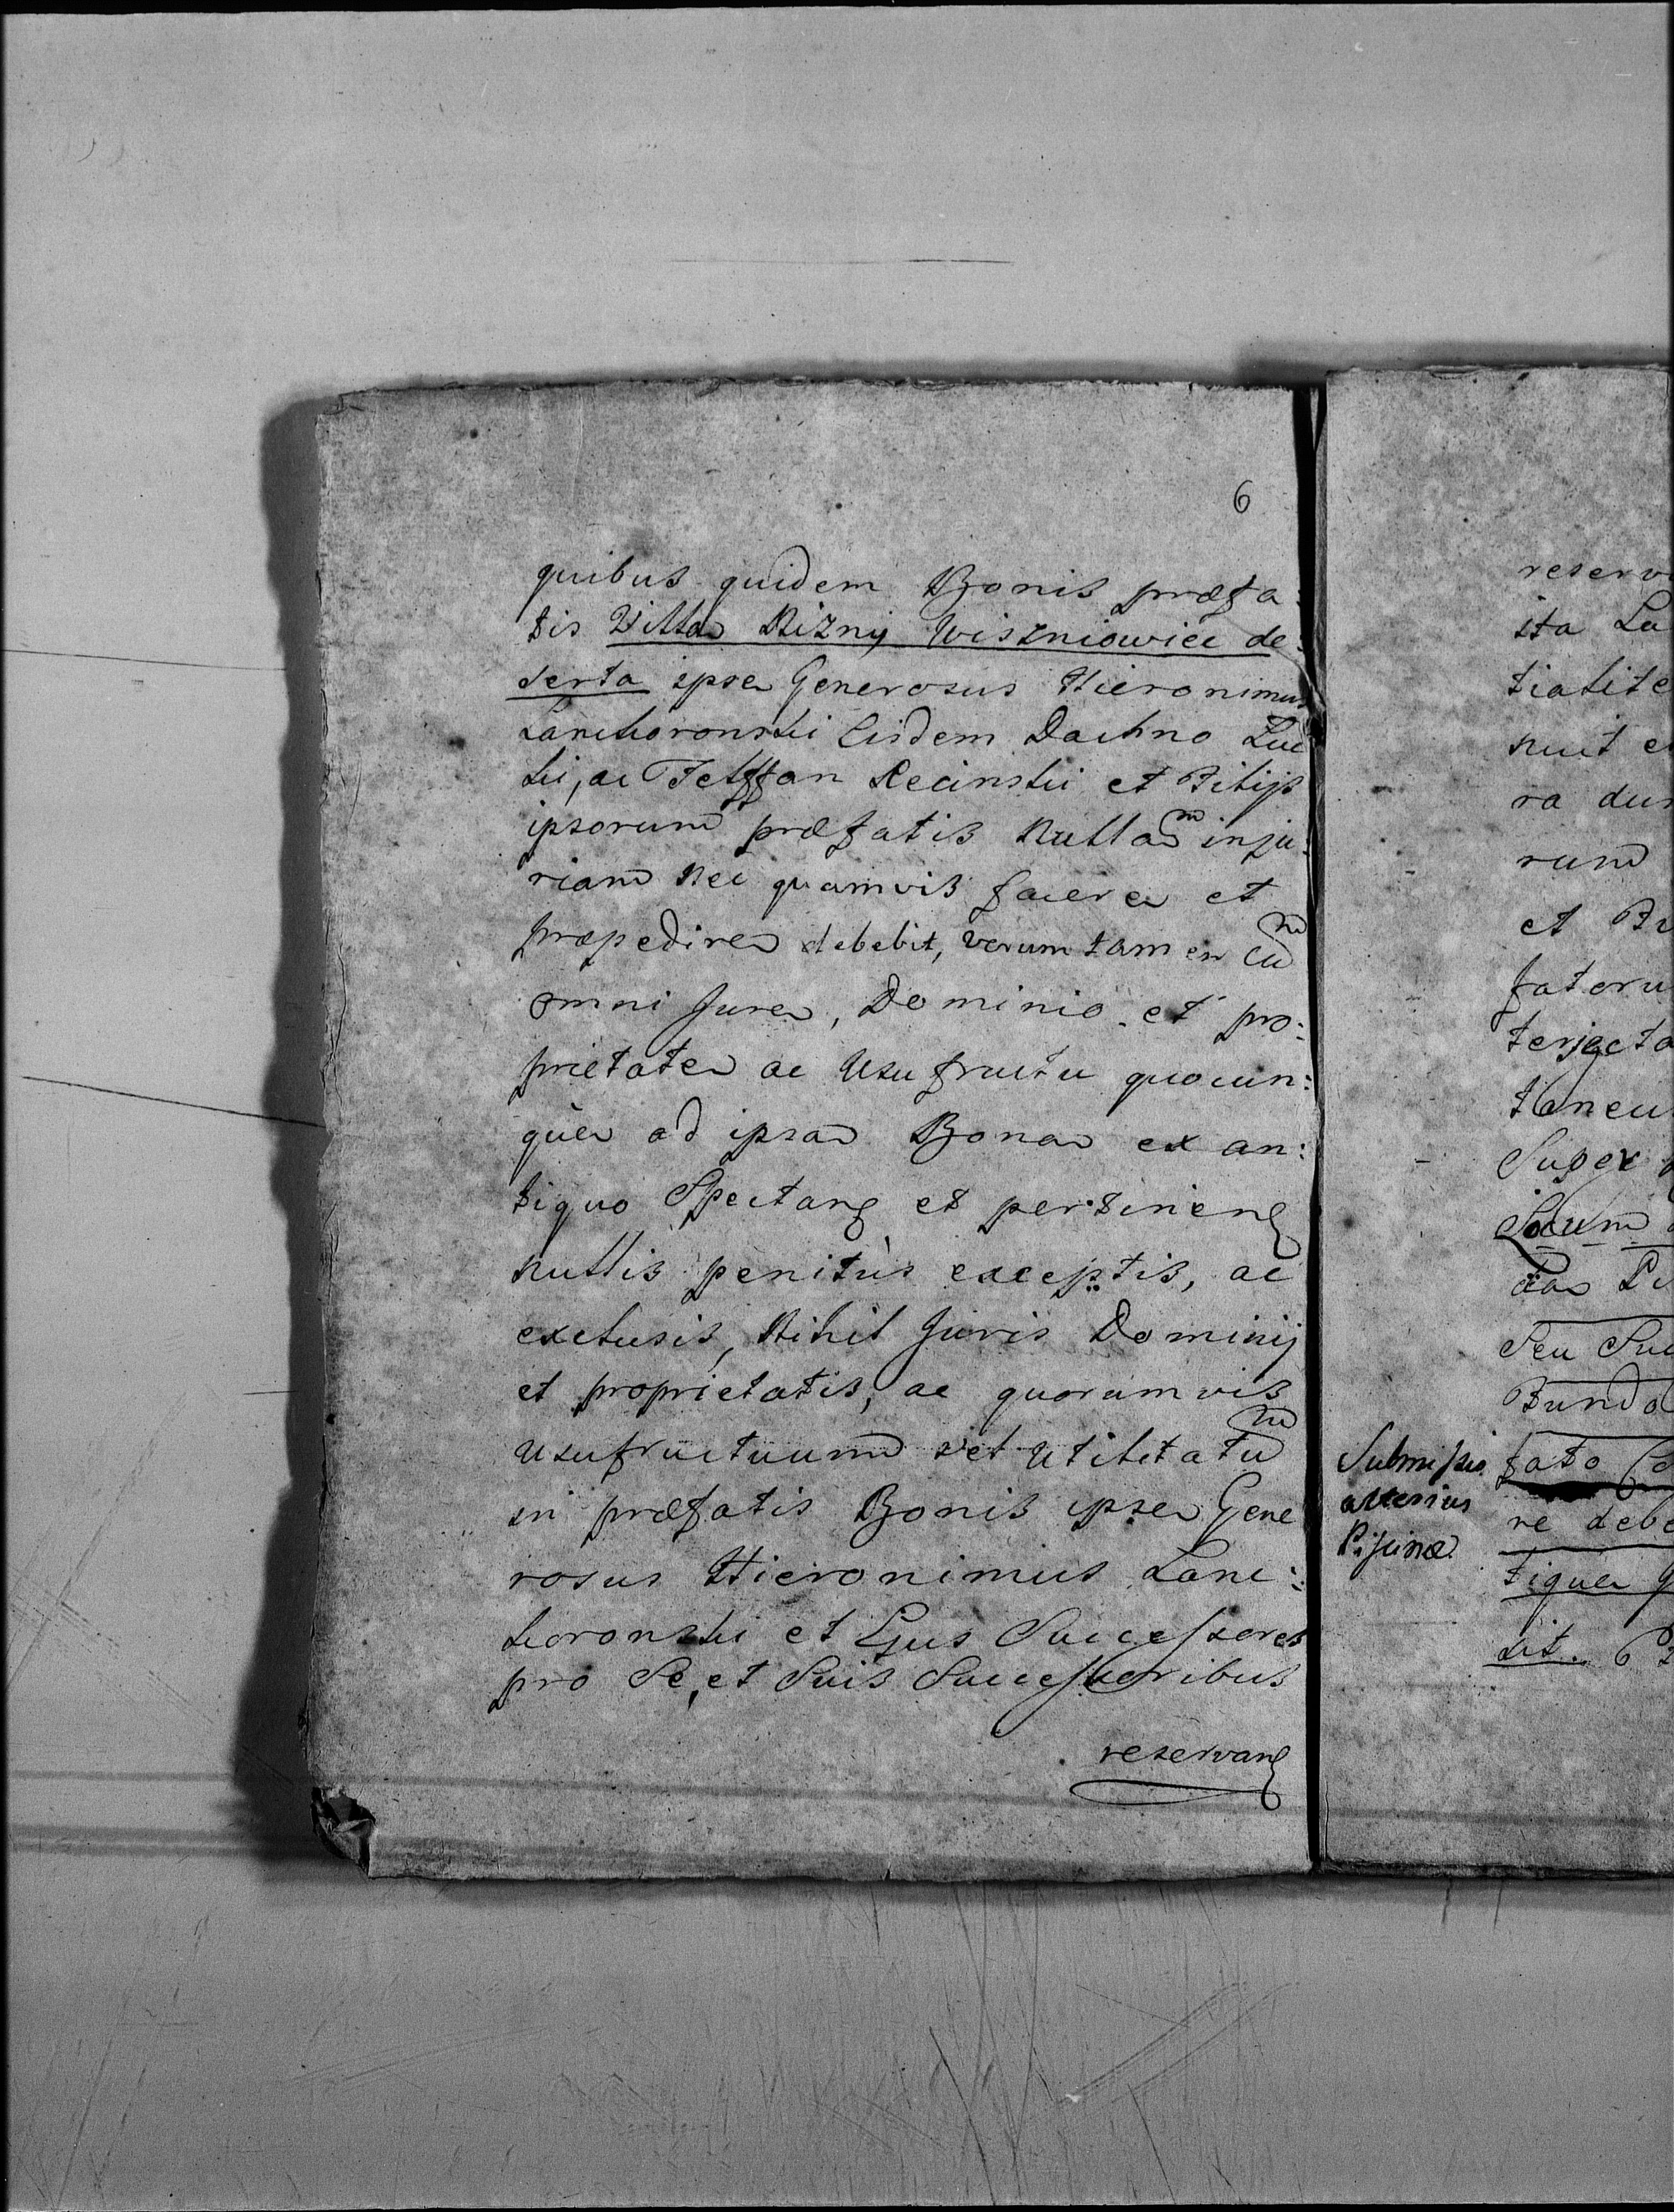 6
quibus quidem Bonis præfa:
tis Villa Nizny Wiszniowiec de:
serta ipse Generosus Hieronimus
Lanckoronski Eisdem Dachno Luc
ki, ac Telffan Recinski et Filijs
ipsorum præfatis nullam inju:
riam nec quamvis facere et
præpedire debebit, verum tamen cum
omni Jure, Dominio et pro:
prietate ac Usufructu quocun:
què ad ipsa Bona ex an:
tiquo Spectan et pertinen
nullis penitùs exceptis, ac
exclusis, Nihil Juris Dominij
et proprietatis, ac quorumvis
usufructuum vel Utilitatum
in præfatis Bonis ipse Gene
rosus Hieronimus Lanc:
koronski et Ejus Successores
pro Se, et Suis Successoribus
reservan
reserv
ita La
tialite
nuit e
ra du
rum
et B
fatoru
terjecta
taneu
Super
Locum
Seu Su
fato
re debe
tique
sit.
Submissio